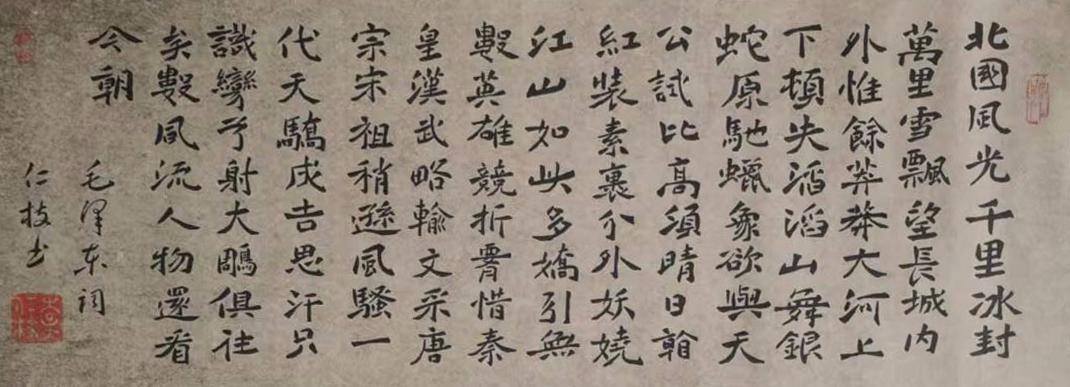 北國風光千里冰封
萬里雪飄望長城内
外惟餘莽莽大河上
下頓失滔滔山舞銀
蛇原馳蠟象欲與天
公試比高須晴日
紅裝素裹分外妖嬈
江山如此多嬌引無
數英雄競折腰惜秦
皇漢武略輸文采唐
宗宋祖稍遜風騷一
代天驕成吉思汗只
識彎弓射大鵰俱往
矣數風流人物還看
今朝
毛澤東詞
仁枝书